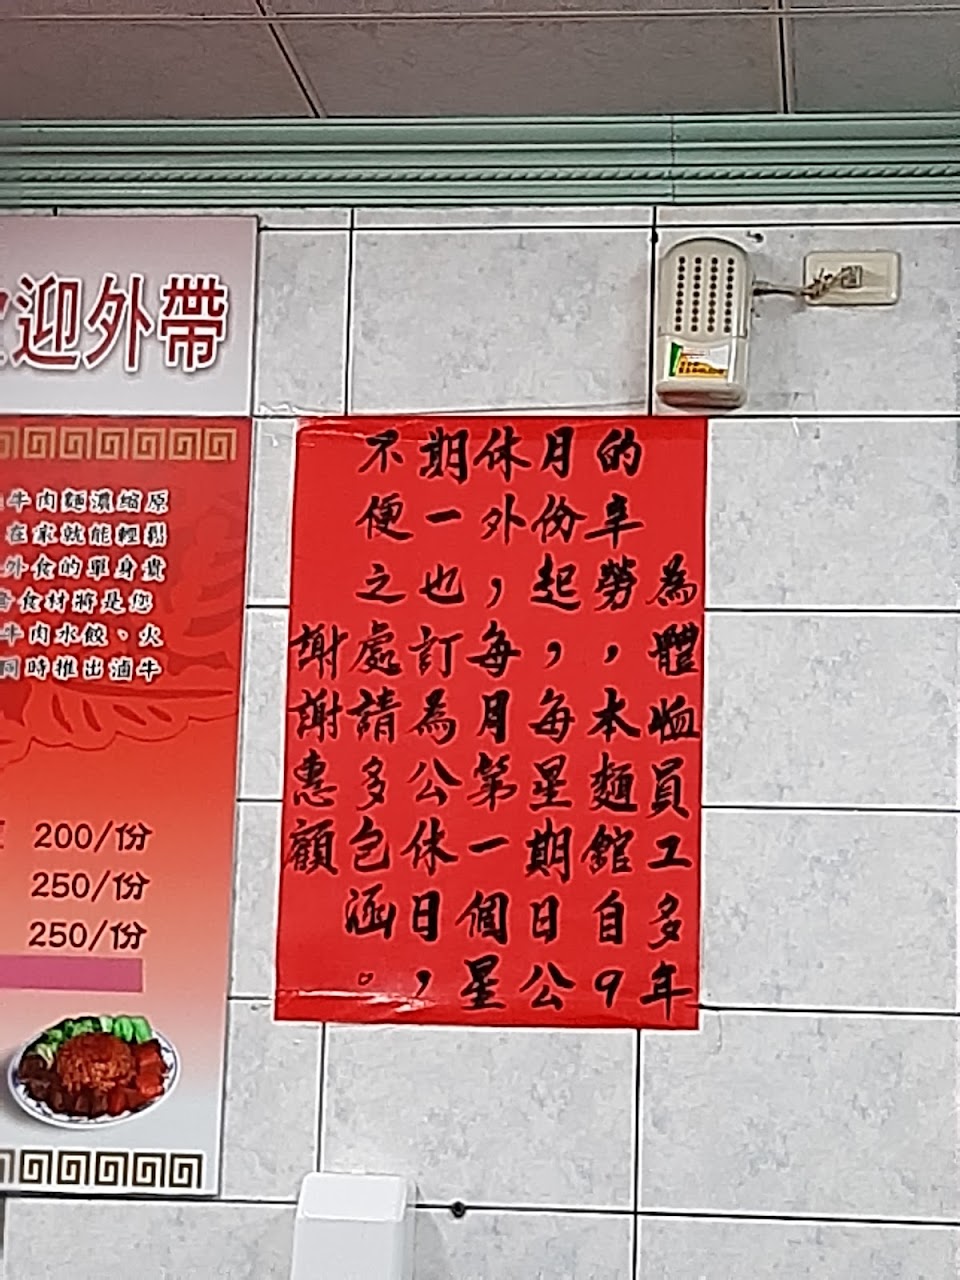 迎外帶
牛肉麵濃縮原
在家就能輕鬆
外食的單身貴
食材將是您
牛肉水餃、火
同時推出滷牛
200/份
250/份
250/份
為體恤員工多年
的辛勞，本麵館自9
月份起，每星期日公
休外，每月第一個星
期一也訂為公休日，
不便之處請多包涵。
謝謝惠顧